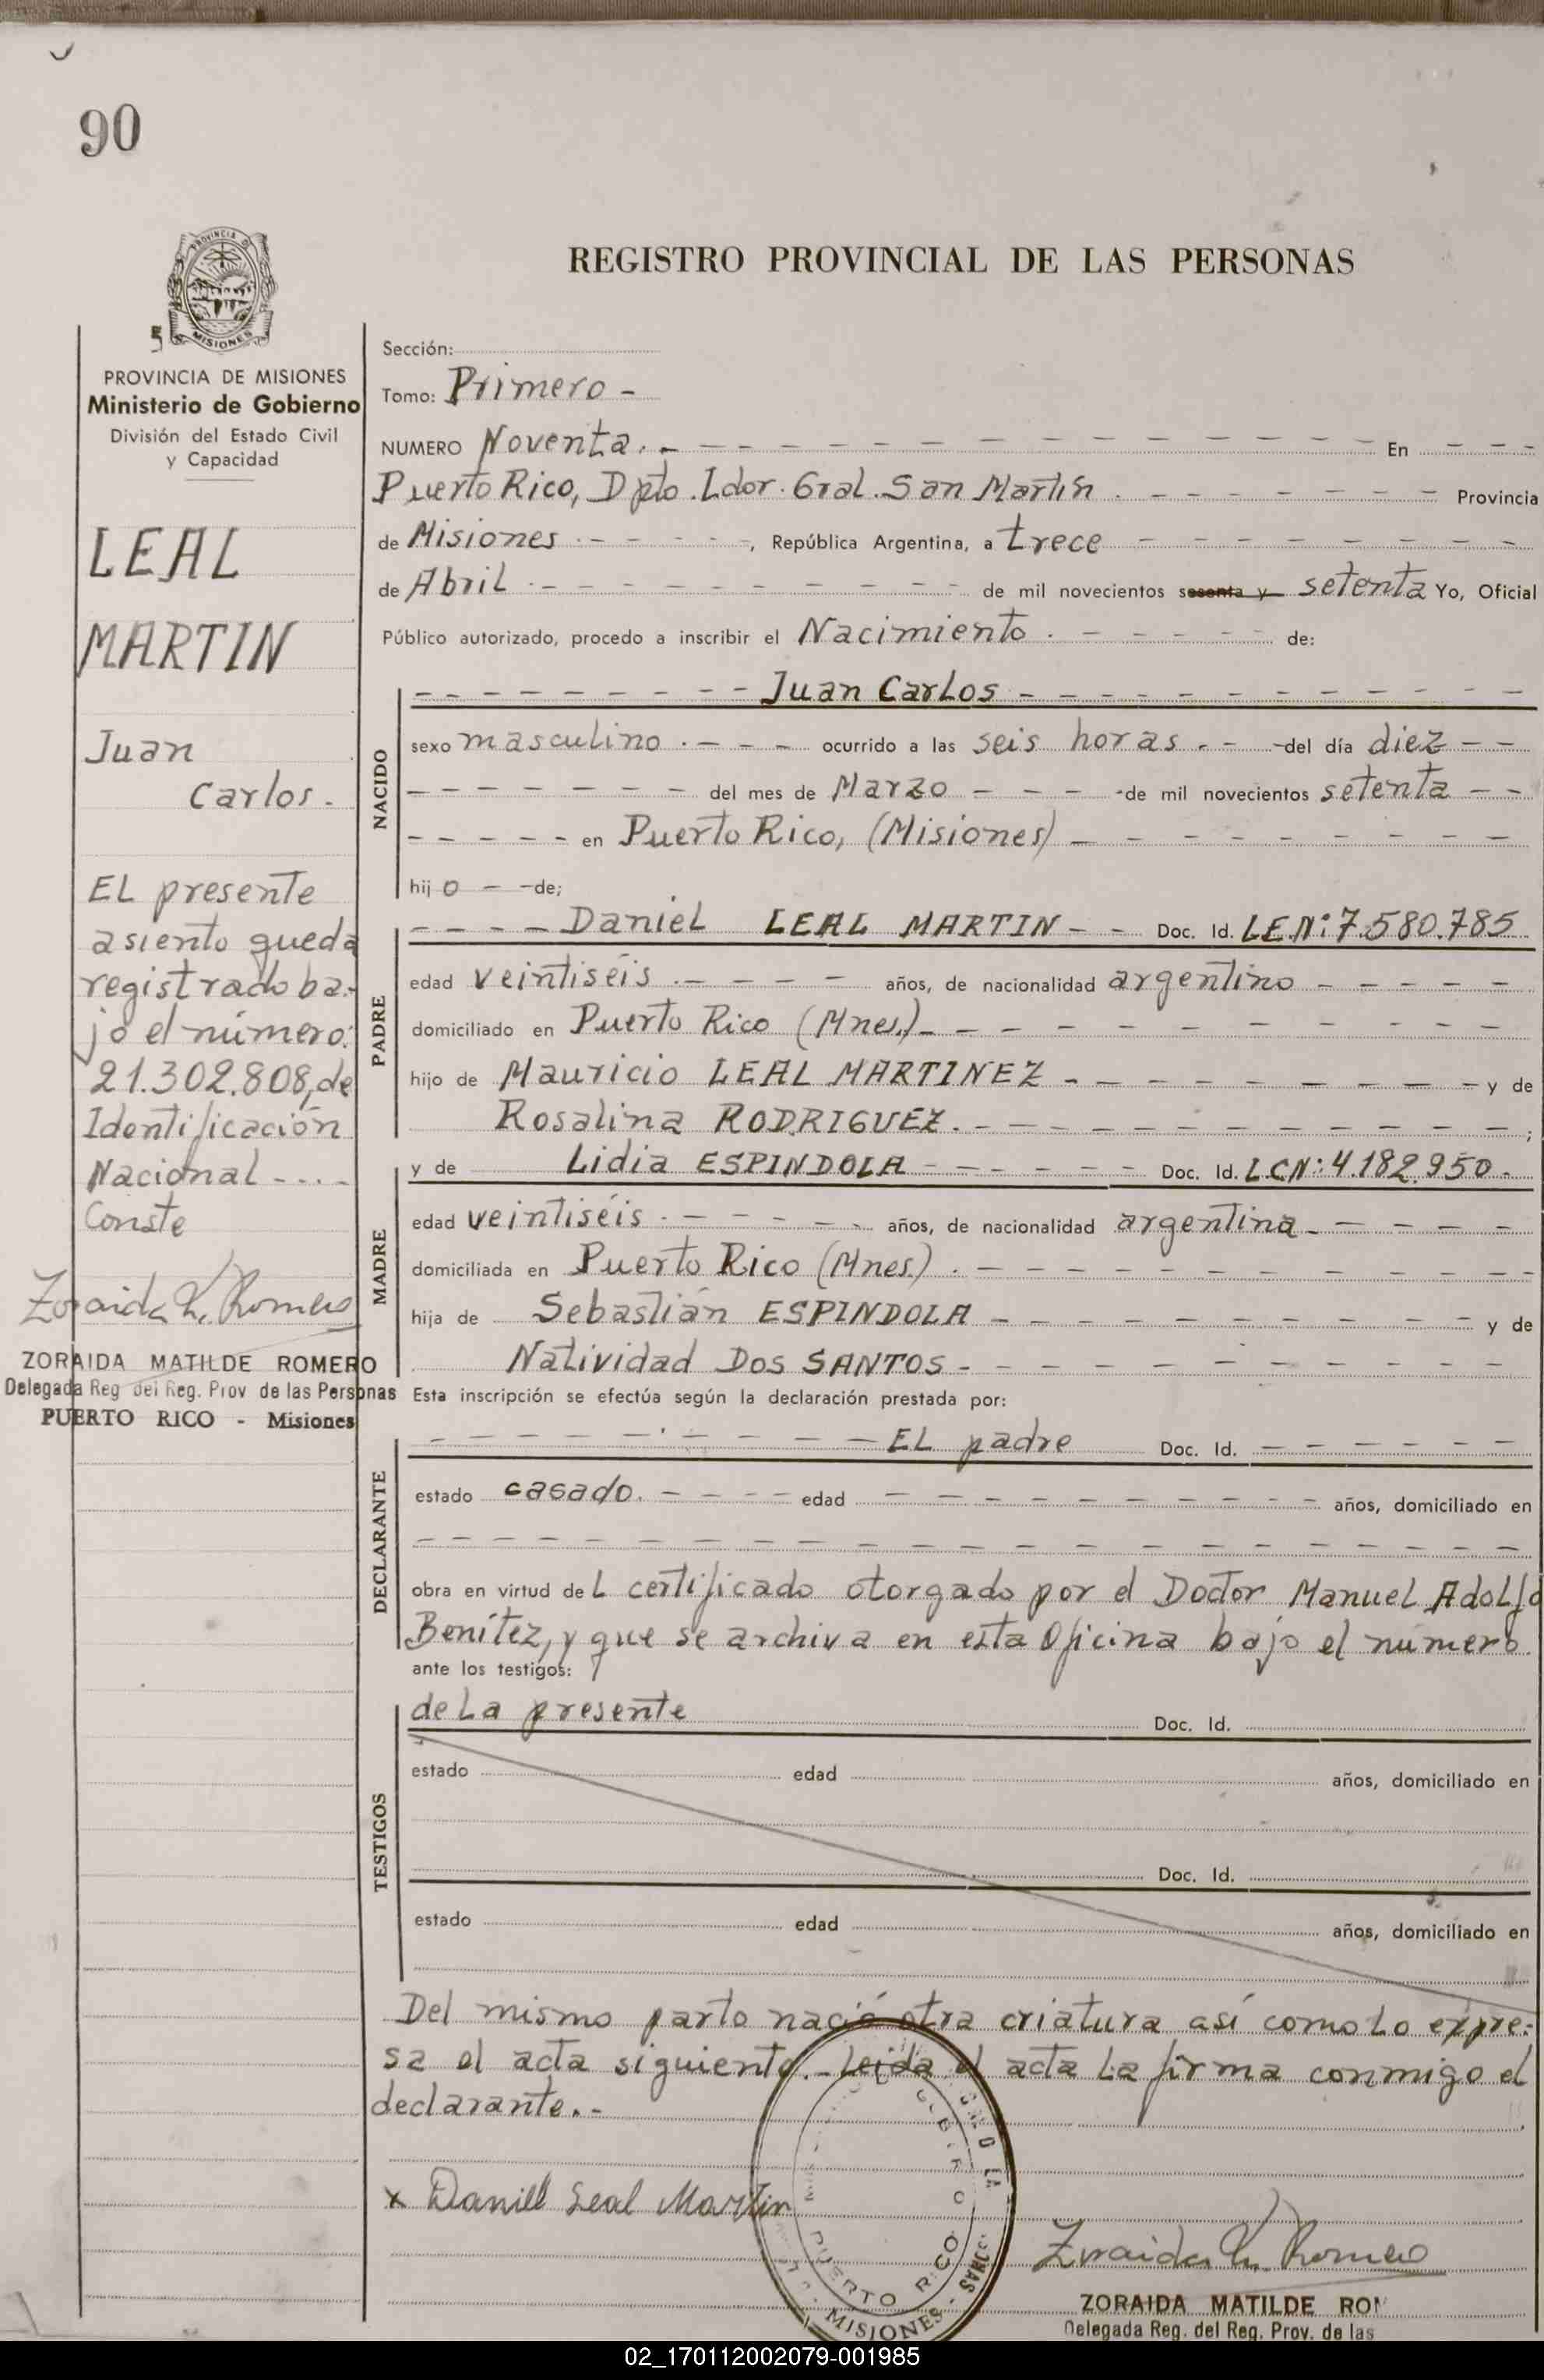 90
REGISTRO PROVINCIAL DE LAS PERSONAS
PROVINCIA DE MISIONES
Ministerio de Gobierno
División del Estado Civil
y Capacidad
LEAL
MARTIN
Juan
Carlos.
EL presente
asiento queda
registrado ba-
jo el número:
21.302.808, de
Identificación
Nacional ----
Conste
Zoraida M. Romero
ZORAIDA MATILDE ROMERO
Delegada Reg del Reg. Prov de las Personas
PUERTO RICO - Misiones
Sección:
Tomo: Primero -
NUMERO Noventa.- En
Puerto Rico, Dpto. Ldor. Gral. San Martín. Provincia
de Misiones, República Argentina, a trece
de Abril de mil novecientos sesenta y setenta Yo, Oficial
Público autorizado, procedo a inscribir el Nacimiento de:
NACIDO
Juan Carlos
sexo masculino. ocurrido a las seis horas. del día diez
del mes de Marzo de mil novecientos setenta
en Puerto Rico, (Misiones)
hijo de;
PADRE
Daniel LEAL MARTIN Doc. Id. L.E.N: 7.580.785
edad veintiséis años, de nacionalidad argentino
domiciliado en Puerto Rico (Mnes.)
hijo de Mauricio LEAL MARTINEZ y de
Rosalina RODRIGUEZ. ;
MADRE
y de Lidia ESPINDOLA Doc. Id. L.C.N: 4.182.950.
edad veintiséis años, de nacionalidad argentina
domiciliada en Puerto Rico (Mnes.)
hija de Sebastián ESPINDOLA y de
Natividad DOS SANTOS
Esta inscripción se efectúa según la declaración prestada por:
DECLARANTE
EL padre Doc. Id.
estado casado. edad años, domiciliado en
obra en virtud deL certificado otorgado por el Doctor Manuel Adolfo
Benítez, y que se archiva en esta Oficina bajo el número
ante los testigos:
TESTIGOS
de La presente Doc. Id.
estado edad años, domiciliado en
Doc. Id.
estado edad años, domiciliado en
Del mismo parto nació otra criatura así como Lo expre-
sa el acta siguiente.- Leída el acta La firma conmigo el
declarante.-
x Daniel Leal Martin
PUERTO RICO
MISIONES
Zoraida M. Romero
ZORAIDA MATILDE ROM
Delegada Reg. del Reg. Prov. de las
02_170112002079-001985